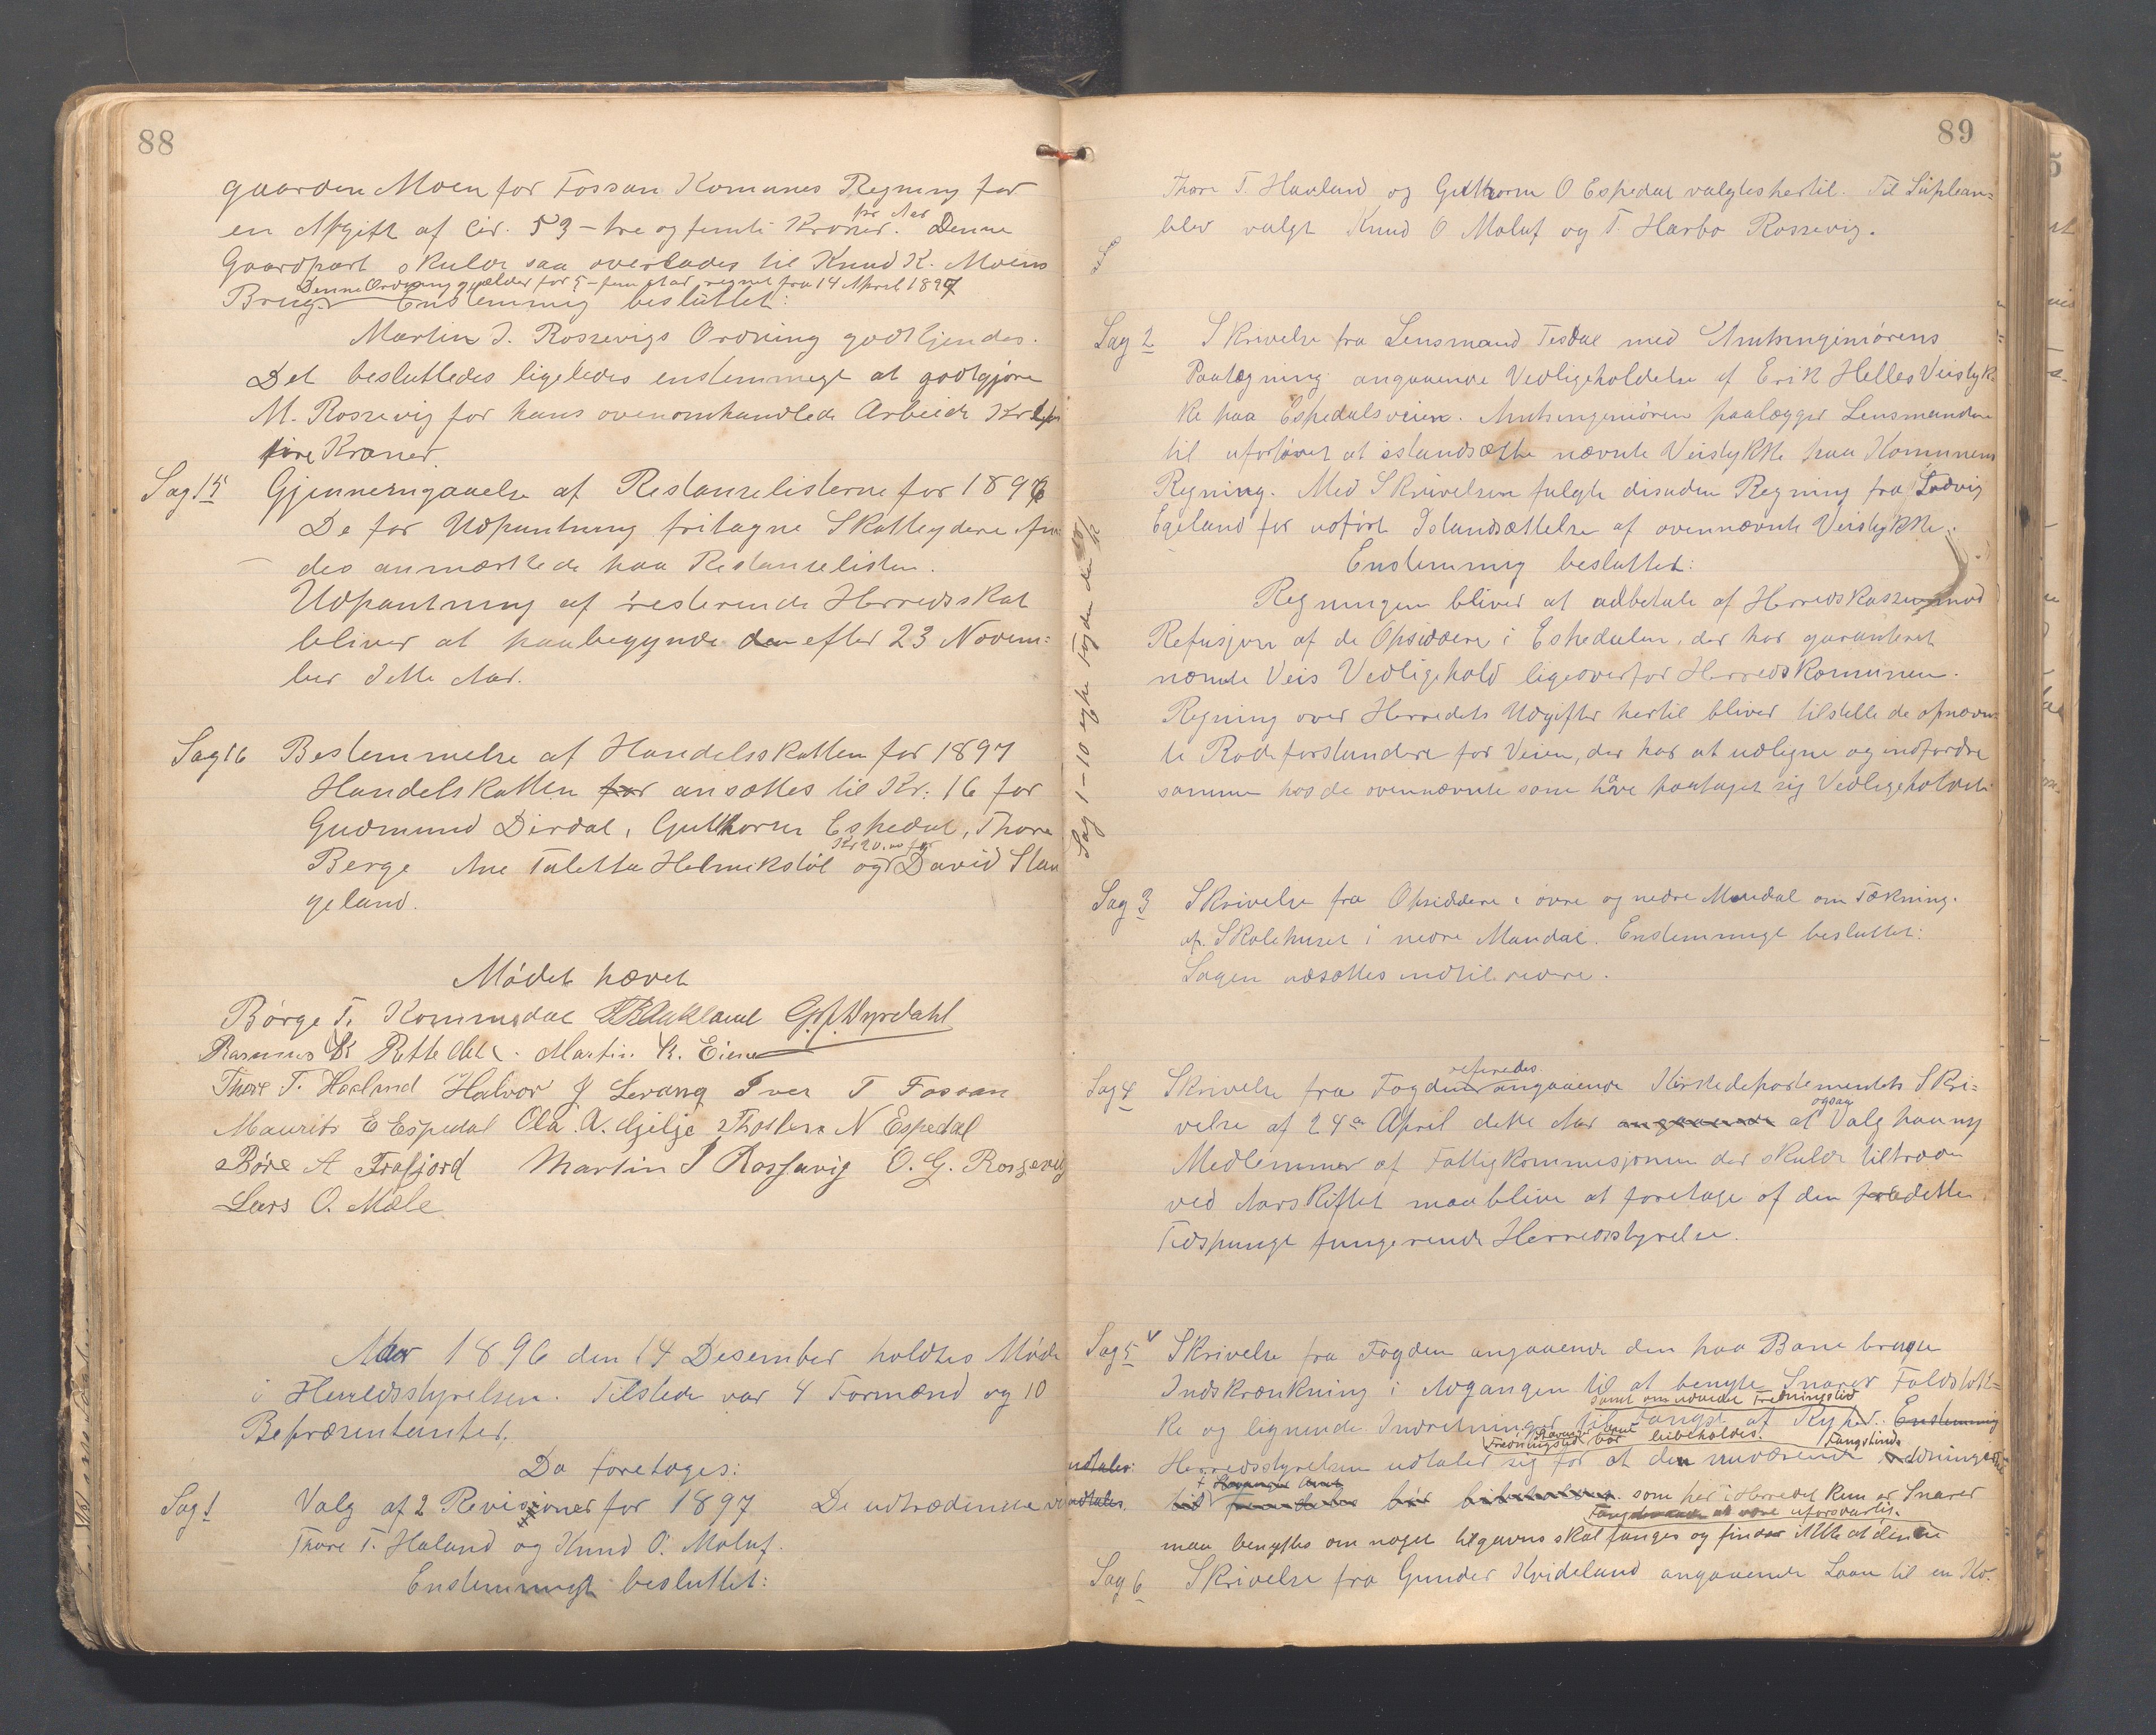 88
gaarden Moen for Fossan Komunes Regning for
en Afgift af cir. 53 - tre og femti Kroner. pr Aar Denne
Gaardpart skulde saa overlades til Knud K. Moens
Brug. Denne Ordning gjælder for 5 - fem Aar regnet fra 14 April 1897
Enstemmig besluttet:
Martin J. Rossevigs Ordning godkjendes.
Det besluttedes ligeledes enstemmigt at godtgjøre
M. Rossevig for hans ovenomhandlede Arbeide Kr
fire Kroner.
Sag 15 Gjennemgaaelse af Restanselisterne for 1896
De for Udpantning fritagne Skatteydere fin
des anmærkede paa Restanselisten.
Udpantning af resterende Herredsskat
bliver at paabegynde den efter 23 Novem=
ber dette Aar.
Sag 16 Bestemmelse af Handelsskatten for 1897
Handelskatten for ansættes til Kr: 16 for
Gudmund Dirdal, Gutthorm Espedal, Thore
Berge Ane Taletta Helmikstøl og Kr 20,00 for David Stan
geland.
Mødet hævet
Børge T. Kommedal
Rasmus K Martin K. Eiene
Thore T. Haaland Halvor J Levang Iver T Fossan
Maurits E Espedal Ola A. Gilje Thosten N Espedal
Børe A Frafjord Martin J Rossavig O. G. Rossevig
Lars O. Mæle
Aar 1896 den 14 Desember holdtes Møde
i Herredsstyrelsen. Tilstede var 4 Formænd og 10
Repræsentanter.
Da foretoges:
Sag 1 Valg af 2 Revisioner for 1897 De udtrædende
Thore T. Haland og Knud O. Maluf.
Enstemmigt besluttet:
89
Thore T. Haaland og Gutthorm O Espedal valgtes hertil. Til Suplean=
blev valgt Knud O Maluf og T. Harbo Rossevig.
Sag 1-10 Fogden
Sag 2 Skrivelse fra Lensmand Tesdal med Amtsingeniørens
Paategning angaaende Vedligeholdelse af Erik Helles Veistyk
ke paa Espedalsveien. Amtsingeniøren paalægger Lensmanden
til ufortøvet at istandsætte nævnte Veistykke paa Kommunens
Regning. Med Skrivelsen fulgte desuden Regning fra Ludvig
Egeland for udført Istandsættelse af ovennævnte Veistykke.
Enstemmig besluttet:
Regningen bliver at udbetale af Herredskassen mod
Refusjon af de Opsiddere i Espedalen, der har garanteret
nævnte Veis Vedligehold ligeoverfor Herredskommunen.
Regning over Herredets Udgifter hertil bliver tilstelle de opnævn
te Rodeforstandere for Veien, der har at udligne og indfordre
samme hos de ovennævnte som have paataget sig Vedligeholdet.
Sag 3 Skrivelse fra Opsiddere i øvre og nedre Maudal om Tækning.
af Skolehuset i nedre Maudal. Enstemmigt besluttet:
Sagen udsættes indtil videre.
Sag 4 Skrivelse fra Fogden refiredes angaaende Kirkedepartementets Skri=
velse af 24de April dette Aar angaaende at ogsaa Valg paa ny
Medlemmer af Fattigkommisjonen der skulde tiltræde
ved Aarskiftet maa blive at foretage af den paa dette
Tidspungt fungerende Herredsstyrelse.
Sag 5 Skrivelse fra Fogden angaaende den paa Bane bragte
Indskrænkning i Adgangen til at benytte Snarer Faldstok=
ke og lignende Indretninger til Fangst af Ryper. samt om udvidet Fredningstid Enstemmig
udtaler: Herredsstyrelsen udtaler sig for at den nuværende Fredningstid bør beibeholdes. Fangstinds
udtales som her i Herredet kun er Snarer
maa benyttes om noget tilgavns skal fanges og finder ikke at denne
Fangstmaade at være uforsvarlig.
Sag 6 Skrivelse fra Gunder Kvideland angaaende Laan til en Ko.